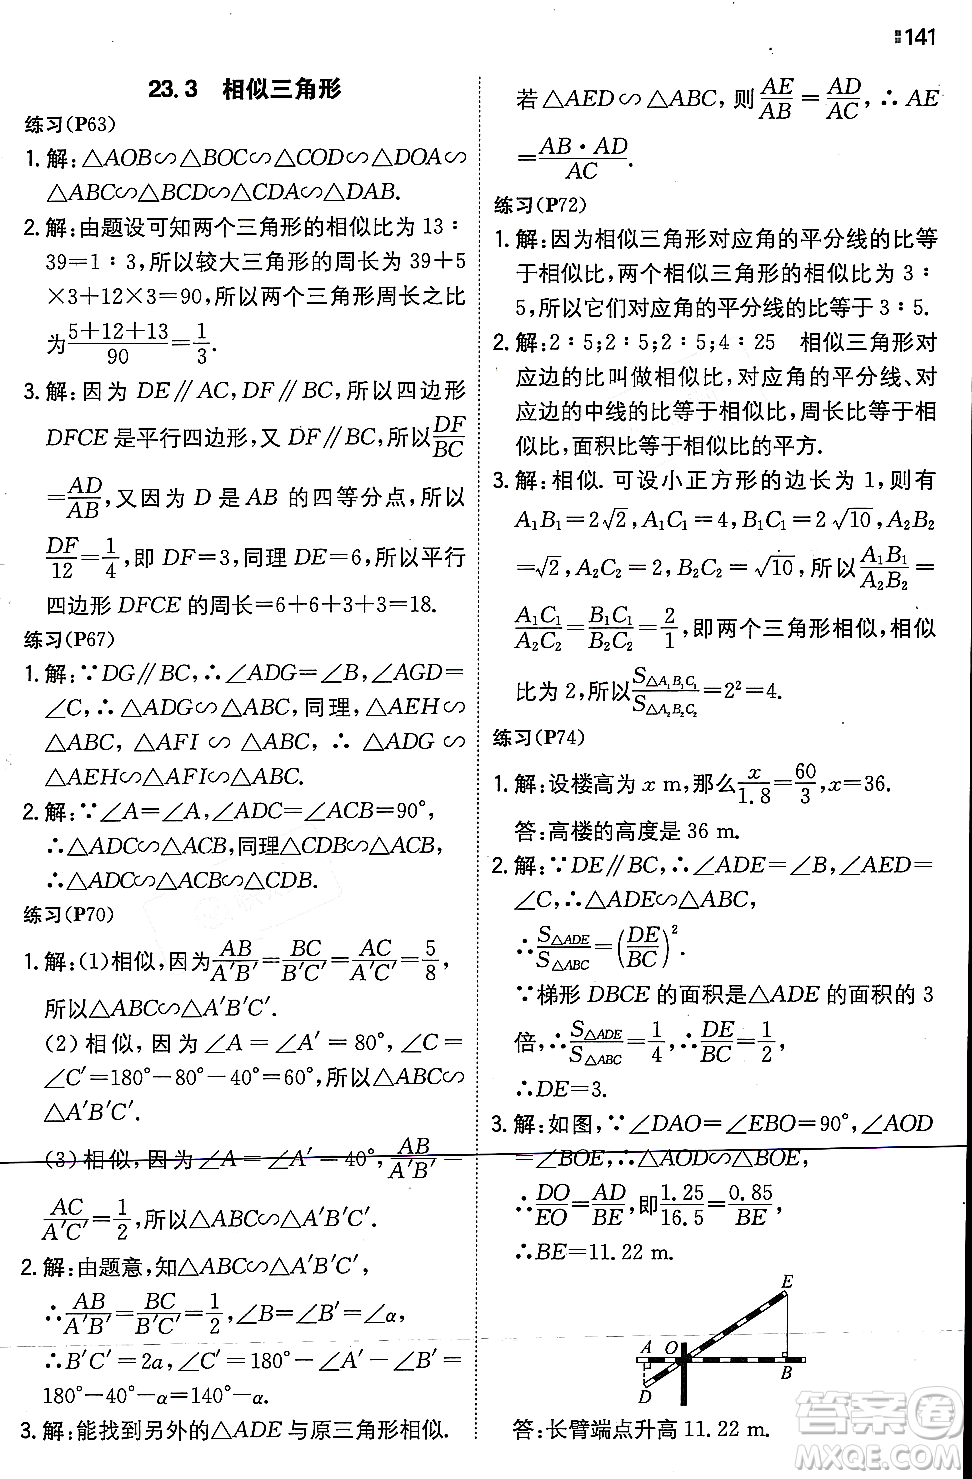 141
23.3 相似三角形
练习(P63)
1.解:△AOB∽△BOC∽△COD∽△DOA∽
△ABC∽△BCD∽△CDA∽△DAB.
2.解:由题设可知两个三角形的相似比为 13∶
39=1∶3,所以较大三角形的周长为 39+5
×3+12×3=90,所以两个三角形周长之比
为(5+12+13)/90=1/3.
3.解:因为 DE∥AC,DF∥BC,所以四边形
DFCE 是平行四边形,又 DF∥BC,所以DF/BC
=AD/AB,又因为 D 是 AB 的四等分点,所以
DF/12=1/4,即 DF=3,同理 DE=6,所以平行
四边形 DFCE 的周长=6+6+3+3=18.
练习(P67)
1.解:∵DG∥BC,∴∠ADG=∠B,∠AGD=
∠C,∴△ADG∽△ABC,同理,△AEH∽
△ABC,△AFI∽△ABC,∴△ADG∽
△AEH∽△AFI∽△ABC.
2.解:∵∠A=∠A,∠ADC=∠ACB=90°,
∴△ADC∽△ACB,同理△CDB∽△ACB,
∴△ADC∽△ACB∽△CDB.
练习(P70)
1.解:(1)相似,因为AB/A′B′=BC/B′C′=AC/A′C′=5/8,
所以△ABC∽△A′B′C′.
(2)相似,因为∠A=∠A′=80°,∠C=
∠C′=180°-80°-40°=60°,所以△ABC∽
△A′B′C′.
(3)相似,因为∠A=∠A′=40°,AB/A′B′=
AC/A′C′=1/2,所以△ABC∽△A′B′C′.
2.解:由题意,知△ABC∽△A′B′C′,
∴AB/A′B′=BC/B′C′=1/2,∠B=∠B′=∠α,
∴B′C′=2a,∠C=180°-∠A′-∠B′=
180°-40°-α=140°-α.
3.解:能找到另外的△ADE与原三角形相似.
若△AED∽△ABC,则AE/AB=AD/AC,∴AE
=AB·AD/AC.
练习(P72)
1.解:因为相似三角形对应角的平分线的比等
于相似比,两个相似三角形的相似比为 3∶
5,所以它们对应角的平分线的比等于 3∶5.
2.解:2∶5;2∶5;2∶5;4∶25 相似三角形对
应边的比叫做相似比,对应角的平分线、对
应边的中线的比等于相似比,周长比等于相
似比,面积比等于相似比的平方.
3.解:相似.可设小正方形的边长为 1,则有
A₁B₁=2√2,A₁C₁=4,B₁C₁=2√10,A₂B₂
=√2,A₂C₂=2,B₂C₂=√10,所以A₁B₁/A₂B₂=
A₁C₁/A₂C₂=B₁C₁/B₂C₂=2/1,即两个三角形相似,相似
比为 2,所以S△A₁B₁C₁/S△A₂B₂C₂=2²=4.
练习(P74)
1.解:设楼高为 x m,那么x/1.8=60/3,x=36.
答:高楼的高度是 36 m.
2.解:∵DE∥BC,∴∠ADE=∠B,∠AED=
∠C,∴△ADE∽△ABC,
∴S△ADE/S△ABC=(DE/BC)².
∵梯形 DBCE 的面积是△ADE 的面积的 3
倍,∴S△ADE/S△ABC=1/4,∴DE/BC=1/2,
∴DE=3.
3.解:如图,∵∠DAO=∠EBO=90°,∠AOD
=∠BOE,∴△AOD∽△BOE,
∴DO/EO=AD/BE,即1.25/16.5=0.85/BE,
∴BE=11.22 m.
E
A O
D B
答:长臂端点升高 11.22 m.
答案圈
MXQE.COM